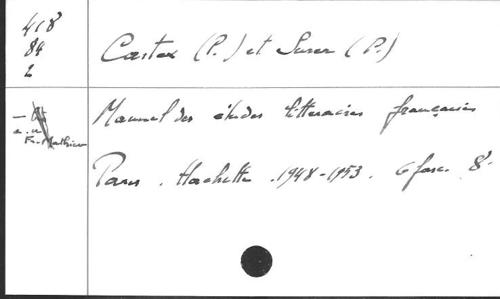 418
84
2
Castex (P.) et Surer (P.)
Manuel des études littéraires françaises
Fr. Mathieu
Paris. Hachette. 1948-1953. 6 fasc. 8°